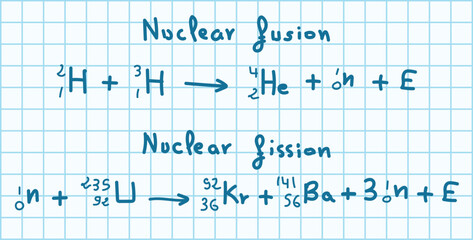 Nuclear fusion
²₁H + ³₁H → ⁴₂He + ¹₀n + E
Nuclear fission
¹₀n + ²³⁵₉₂U → ⁹²₃₆Kr + ¹⁴¹₅₆Ba + 3¹₀n + E